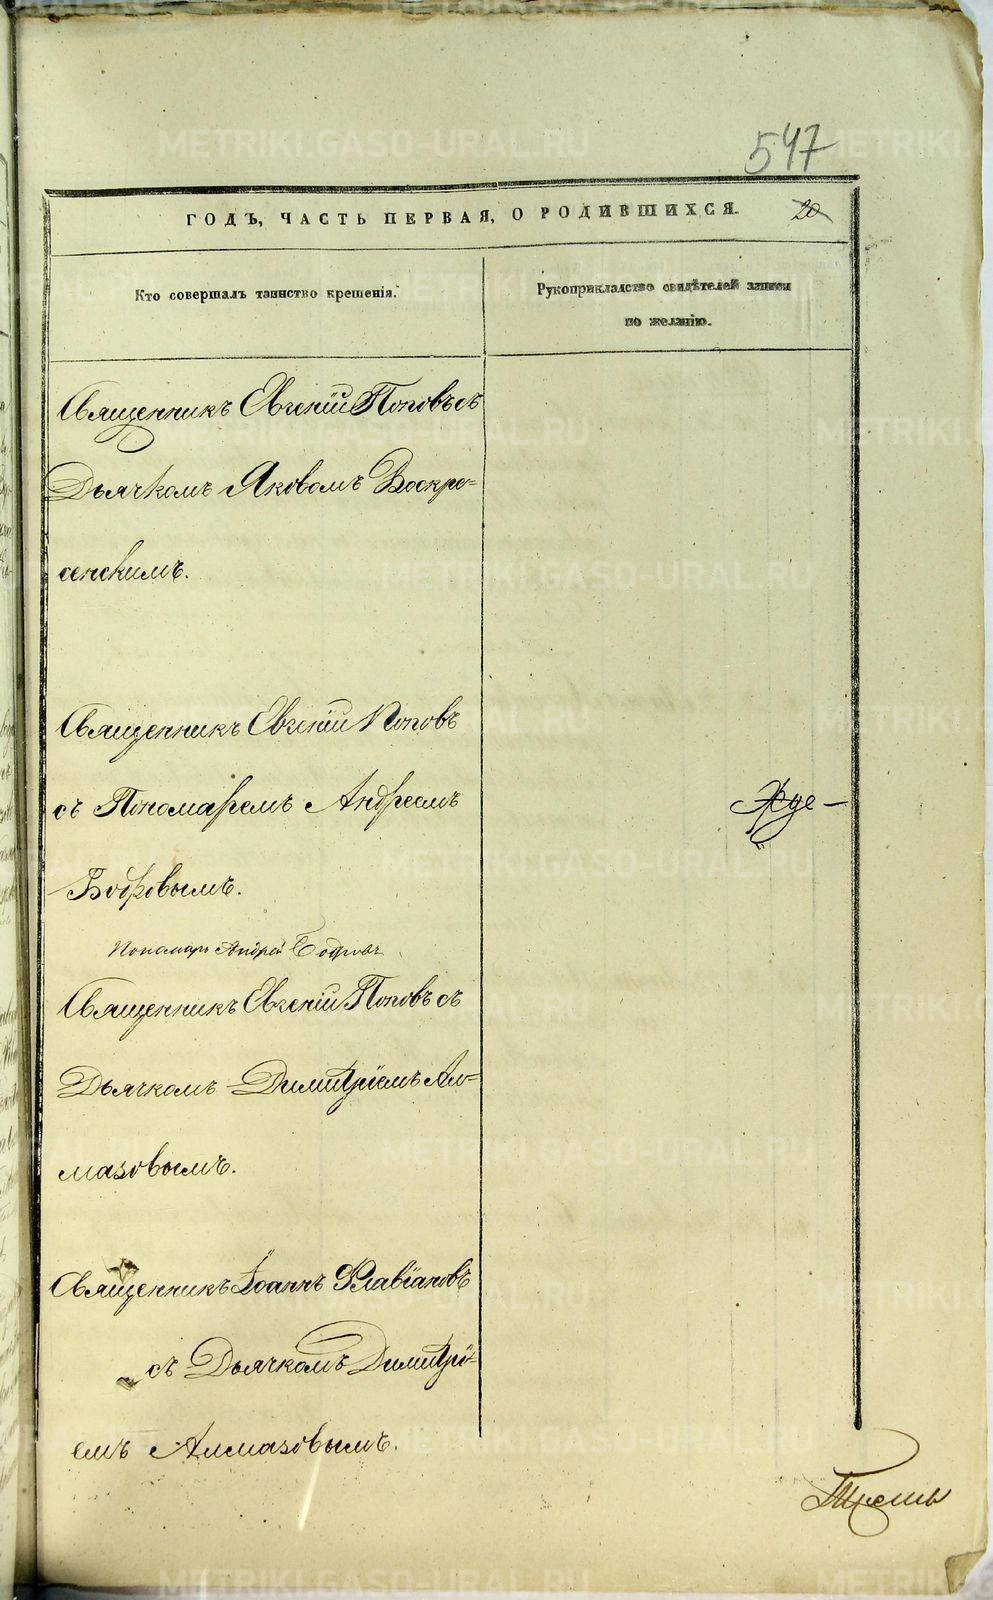 547
ГОДЪ, ЧАСТЬ ПЕРВАЯ, О РОДИВШИХСЯ.
20
Кто совершалъ таинство крещенія.
Рукоприкладство свидѣтелей записи
по желанію.
Священникъ Евгеній Поповъ съ
Дьячкомъ Яковомъ Воскре-
сенскимъ.
Священникъ Евгеній Поповъ
съ Пономаремъ Андреемъ
Бодровымъ.
Пономарь Андрей Бодровъ
Священникъ Евгеній Поповъ съ
Дьячкомъ Димитріемъ Ал-
мазовымъ.
Священникъ Іоаннъ Флавіановъ
съ Дьячкомъ Димитрі-
емъ Алмазовымъ.
METRIKI.GASO-URAL.RU